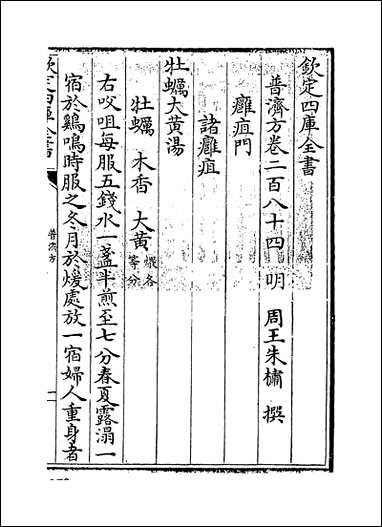 欽定四庫全書
普濟方卷二百八十四 明 周王朱橚 撰
癰疽門
諸癰疽
牡蠣大黃湯
牡蠣 木香 大黃
右㕮咀每服五錢水一盞半煎至七分春夏露溻一
宿於鷄鳴時服之冬月於煖處放一宿婦人重身者
欽定四庫全書
普濟方